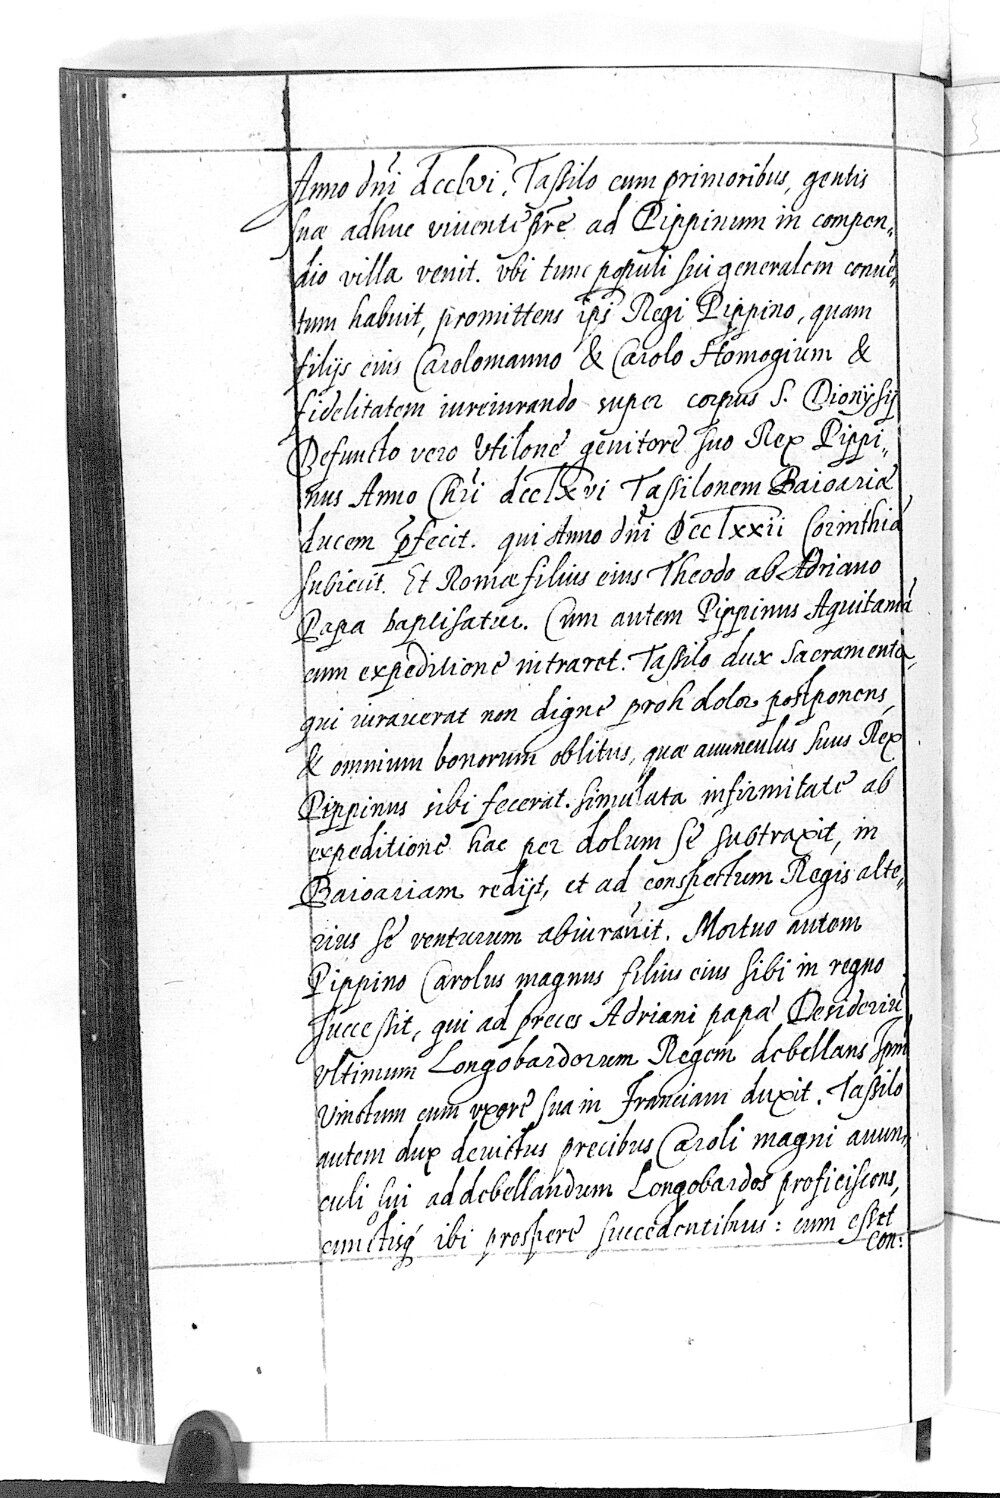 Anno dñi dcclvi. Tassilo cum primoribus, gentis
suæ adhuc viuentē pr̃e ad Pippinum in compen„
dio villa venit. vbi tunc populi sui generalem conuē„
tum habuit, promittens ip̃i Regi Pippino, quam
filijs eius Carolomanno & Carolo Homogium &
fidelitatem iureiurando super corpus S. Dionysij
Defuncto vero Vtilone genitore suo Rex Pippi„
nus Anno Chr̃i dcclxvi Tassilonem Baioariæ
ducem p̃fecit. qui Anno dñi Dcclxxii Corinthiā
subiecit. Et Romæ filius eius Theodo ab Adriano
Papa baptisatur. Cum autem Pippinus Aquitaniā
cum expeditione intraret. Tassilo dux sacramenta„
qui iurauerat non digne proh dolor postponens,
& omnium bonorum oblitus, quæ auunculus suus Rex
Pippinus sibi fecerat. simulata infirmitate ab
expeditione hac per dolum se subtraxit, in
Baioariam redijt, et ad conspectum Regis alte„
rius se venturum abiurauit. Mortuo autem
Pippino Carolus magnus filius eius sibi in regno
successit, qui ad preces Adriani papæ Desideriū
vltimum Longobardorum Regem debellans Ip̃m
Vinctum cum vxore sua in Franciam duxit. Tassilo
autem dux deuictus precibus Caroli magni auun„
culi sui ad debellandum Longobardos proficiscens,
cunctisq́ ibi prospere succedentibus: cum esset
con: